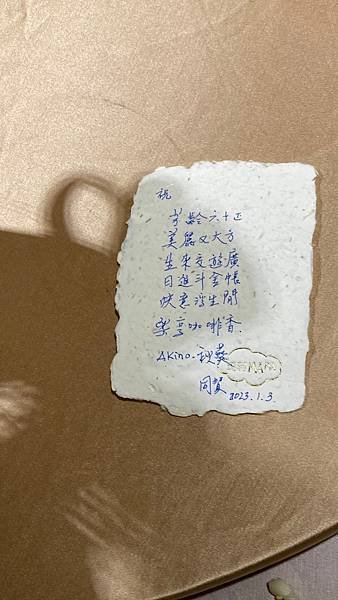 祝
芳齡六十正
美麗又大方
生來交遊廣
日進斗金帳
快意浮生閒
樂享咖啡香.
AKino.秋葵
同賀
2023.1.3.